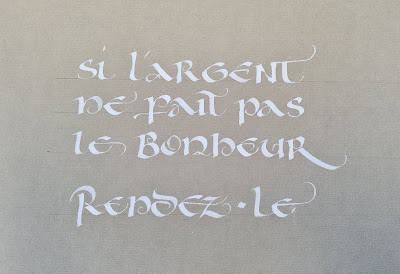 si l'ARGENT
ne fait pas
le Bonheur
Rendez-le